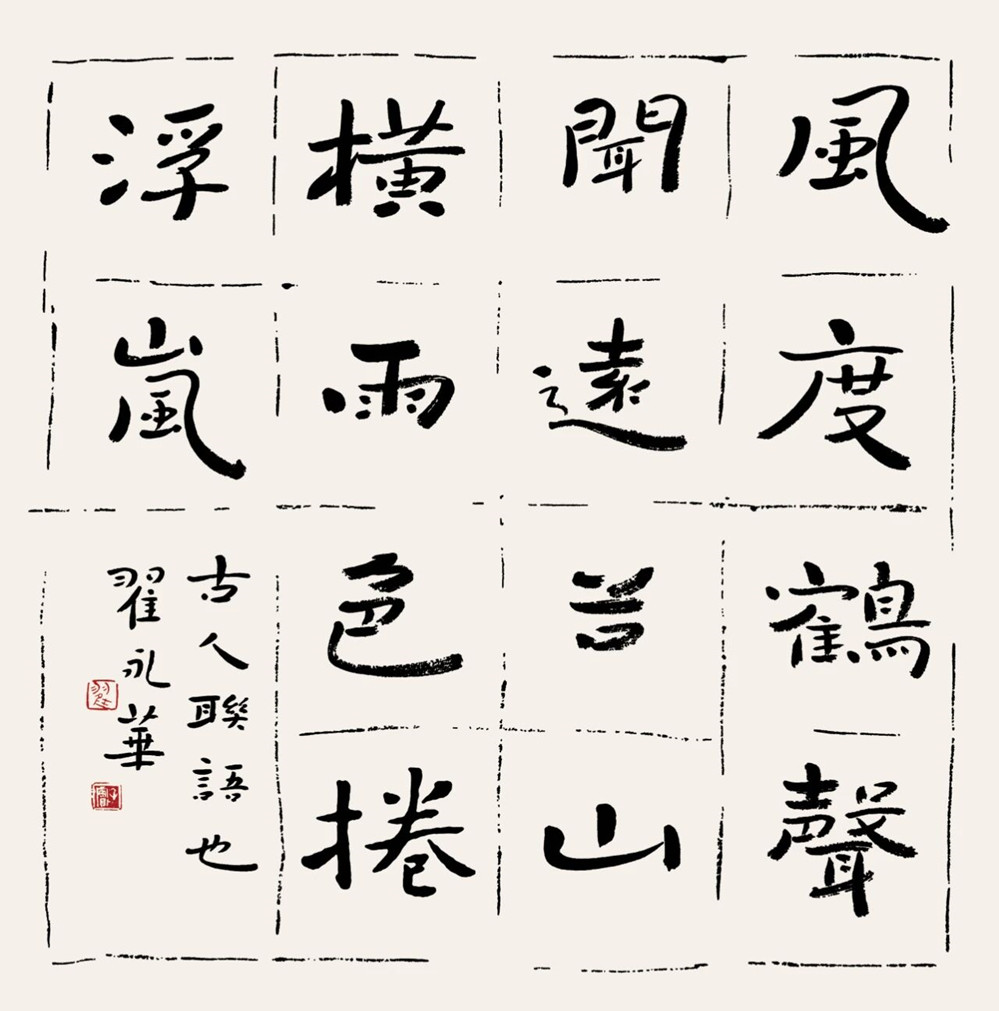 風度鶴聲
聞遠谷山
橫雨色捲
浮嵐
古人聯語也
翟永華
翟